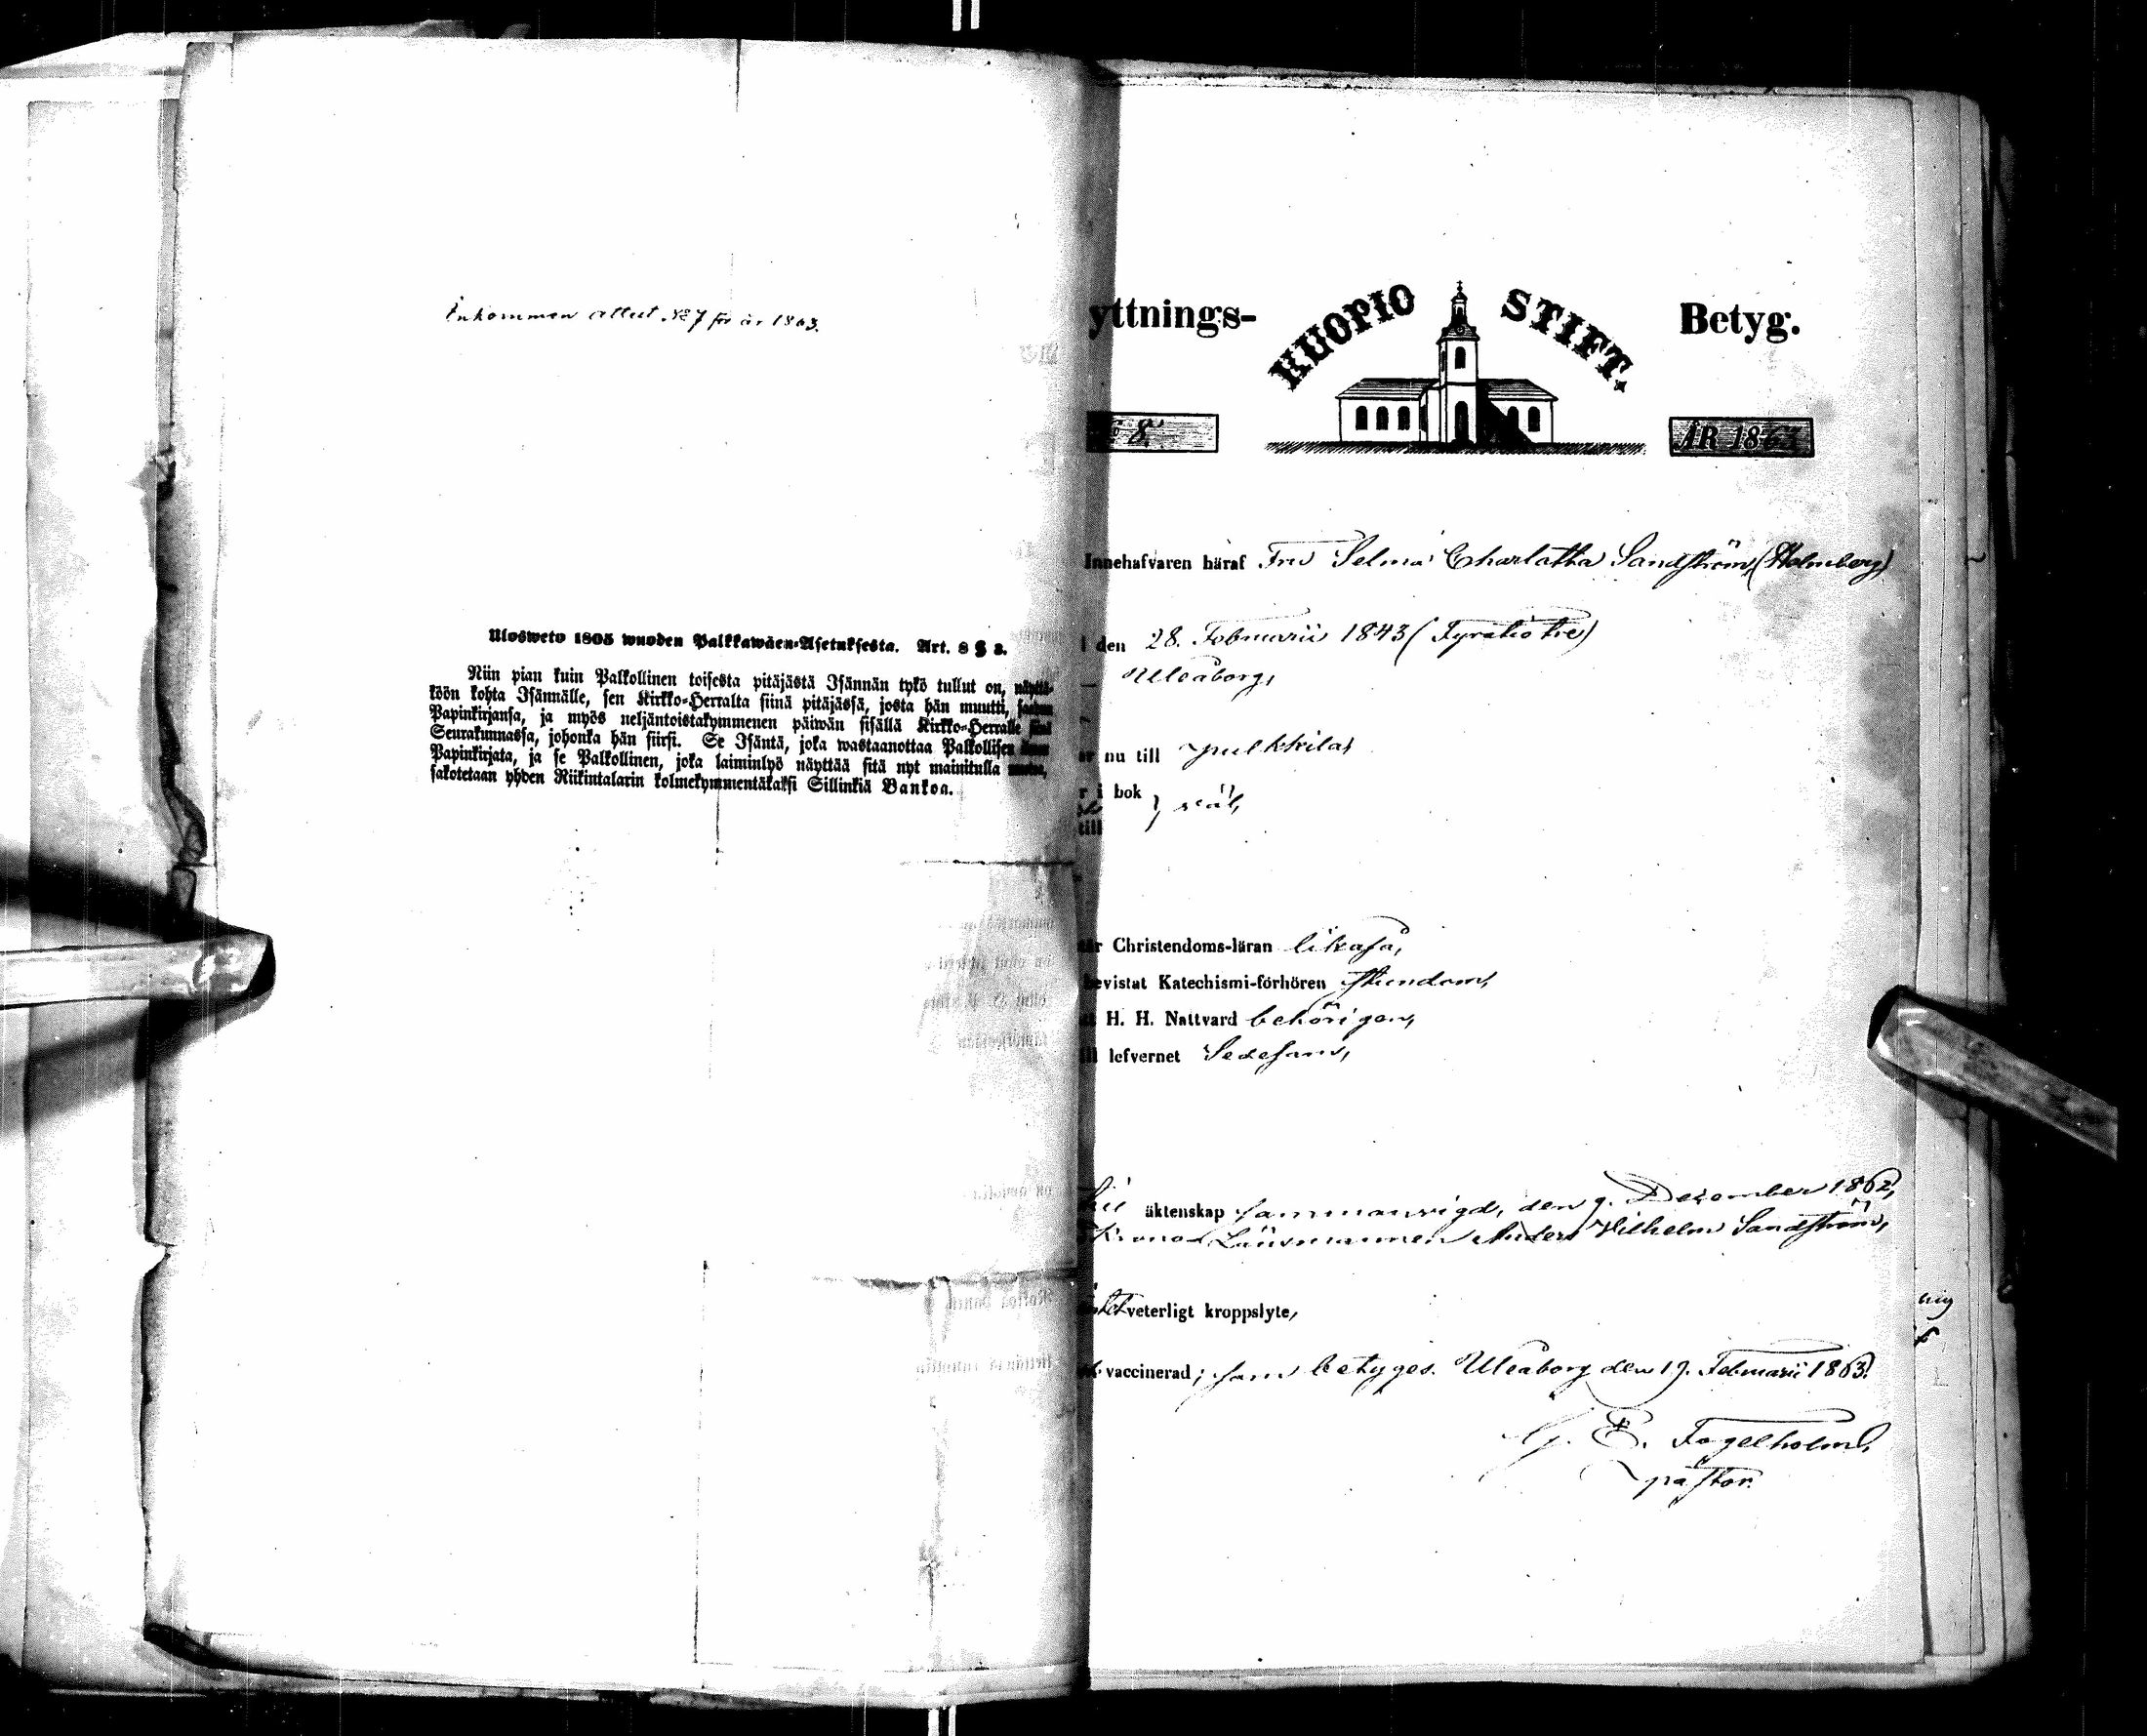 Inkommen attest No 7 för år 1863.
Ulosweto 1805 wuoden Palkkawäen-Asetuksesta. Art. 8 § 3.
Niin pian kuin Palkollinen toisesta pitäjästä Isännän tykö tullut on, näyttä-
köön kohta Isännälle, sen Kirkko-Herralta siinä pitäjässä, josta hän muutti, saadun
Papinkirjansa, ja myös neljäntoistakymmenen päiwän sisällä Kirkko-Herralle siinä
Seurakunnassa, johonka hän siirsi. Se Isäntä, joka wastaanottaa Palkollisen
Papinkirjata, ja se Palkollinen, joka laiminlyö näyttää sitä nyt mainitulla
sakotetaan yhden Riikintalarin kolmekymmentäkaksi Sillinkiä Bankoa.
yttnings-
KUOPIO STIFT.
Betyg.
8.
ÅR 1863
Innehafvaren häraf Fru Selma Charlotta Sandström, (Holmberg)
den 28. Februarii 1843 (Fyratiotre)
Uleåborg,
nu till Pulkkila,
i bok
väl,
till
Christendoms-läran likaså,
bevistat Katechismi-förhören stundom,
H. H. Nattvard behörigen,
lefvernet Sedesam,
Till äktenskap sammanvigd, den 9. December 1862,
Krono Länsmannen Anders Vilhelm Sandström,
veterligt kroppslyte,
vaccinerad; som betygas. Uleåborg den 19. Februarii 1863.
G. E. Fogelholm,
pastor.